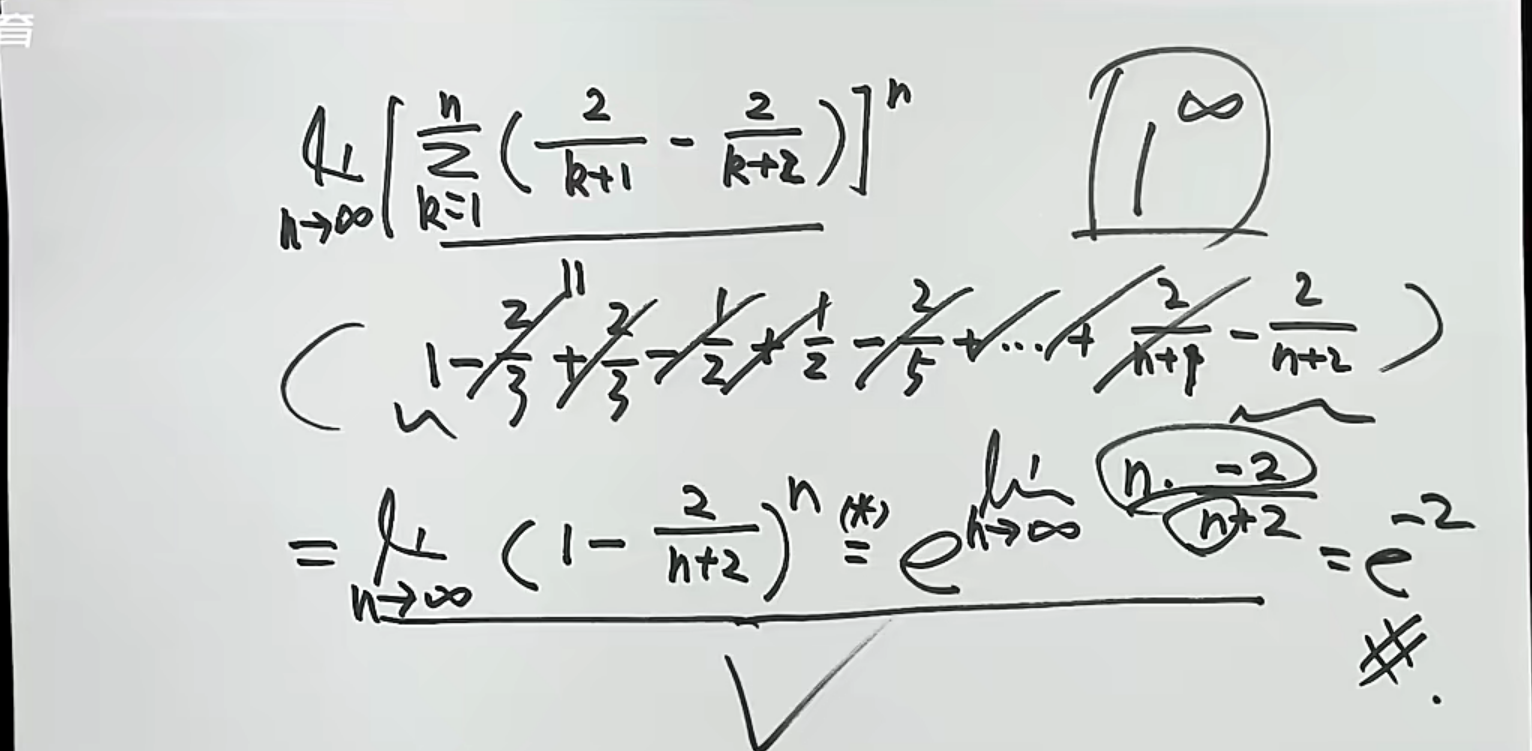 育
lim n→∞ [ ∑ k=1 n ( 2/(k+1) - 2/(k+2) ) ]^n 1^∞
॥
( 1 - 2/3 + 2/3 - 1/2 + 1/2 - 2/5 + ... + 2/(n+1) - 2/(n+2) )
= lim n→∞ ( 1 - 2/(n+2) )^n (*)= e^{lim n→∞ n·-2/(n+2)} = e^{-2}
#.